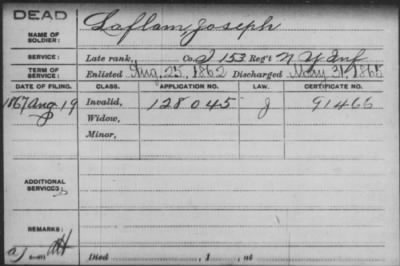 DEAD
NAME OF SOLDIER: Laflam, Joseph
SERVICE: Late rank, Co. I 153 Reg't N Y Inf
TERM OF SERVICE: Enlisted Aug. 25, 1862 Discharged May 31, 1865
DATE OF FILING. CLASS. APPLICATION NO. LAW. CERTIFICATE NO.
1867 Aug 19 Invalid, 128045 91466
Widow,
Minor,
ADDITIONAL SERVICES:
REMARKS:
Died , 1 , at